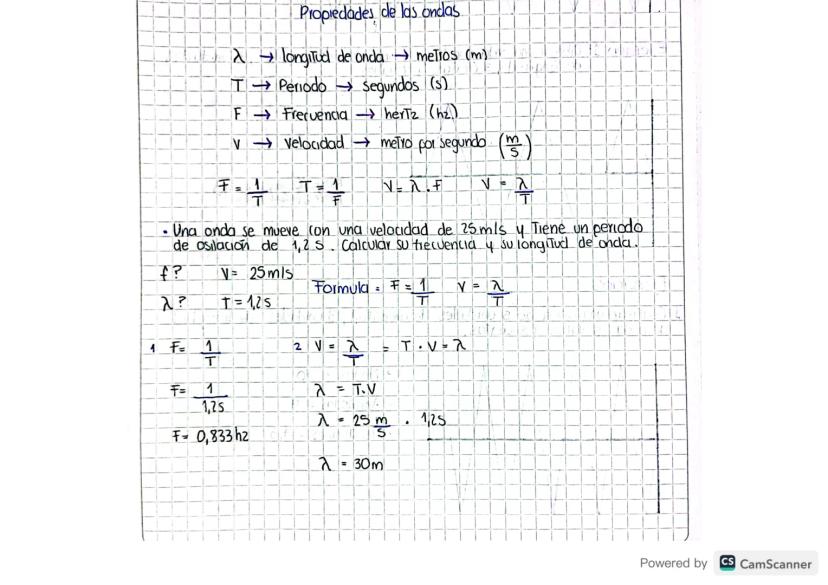 Propiedades de las ondas
λ → longitud de onda → metros (m)
T → Periodo → segundos (s)
F → Frecuencia → hertz (hz)
V → velocidad → metro por segundo (m/s)
F = 1/T T = 1/F V = λ . F V = λ/T
• Una onda se mueve con una velocidad de 25m/s y Tiene un periodo
de osilación de 1,2 s. Calcular su frecuencia y su longitud de onda.
f? V= 25m/s Formula = F = 1/T V = λ/T
λ? T = 1,2s
1 F= 1/T 2 V = λ/T = T . V = λ
F= 1/1,2s λ = T.V
λ = 25 m/s . 1,2s
F= 0,833hz
λ = 30m
Powered by CS CamScanner